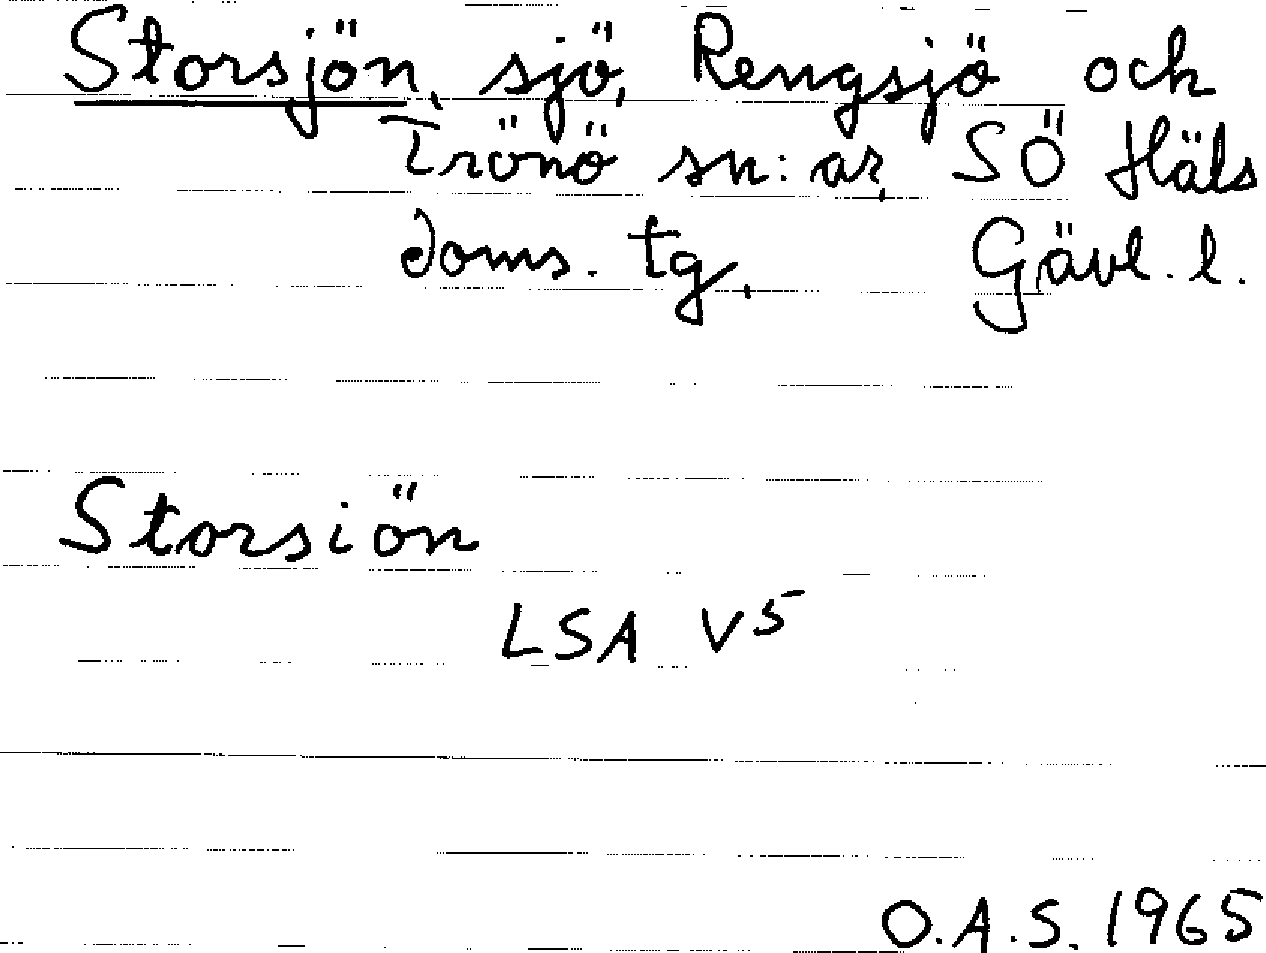 Storsjön, sjö, Rengsjö och
Trönö sn:ar, SÖ Häls
doms. tg, Gävl. l.
Storsiön
LSA V5
O.A.S. 1965